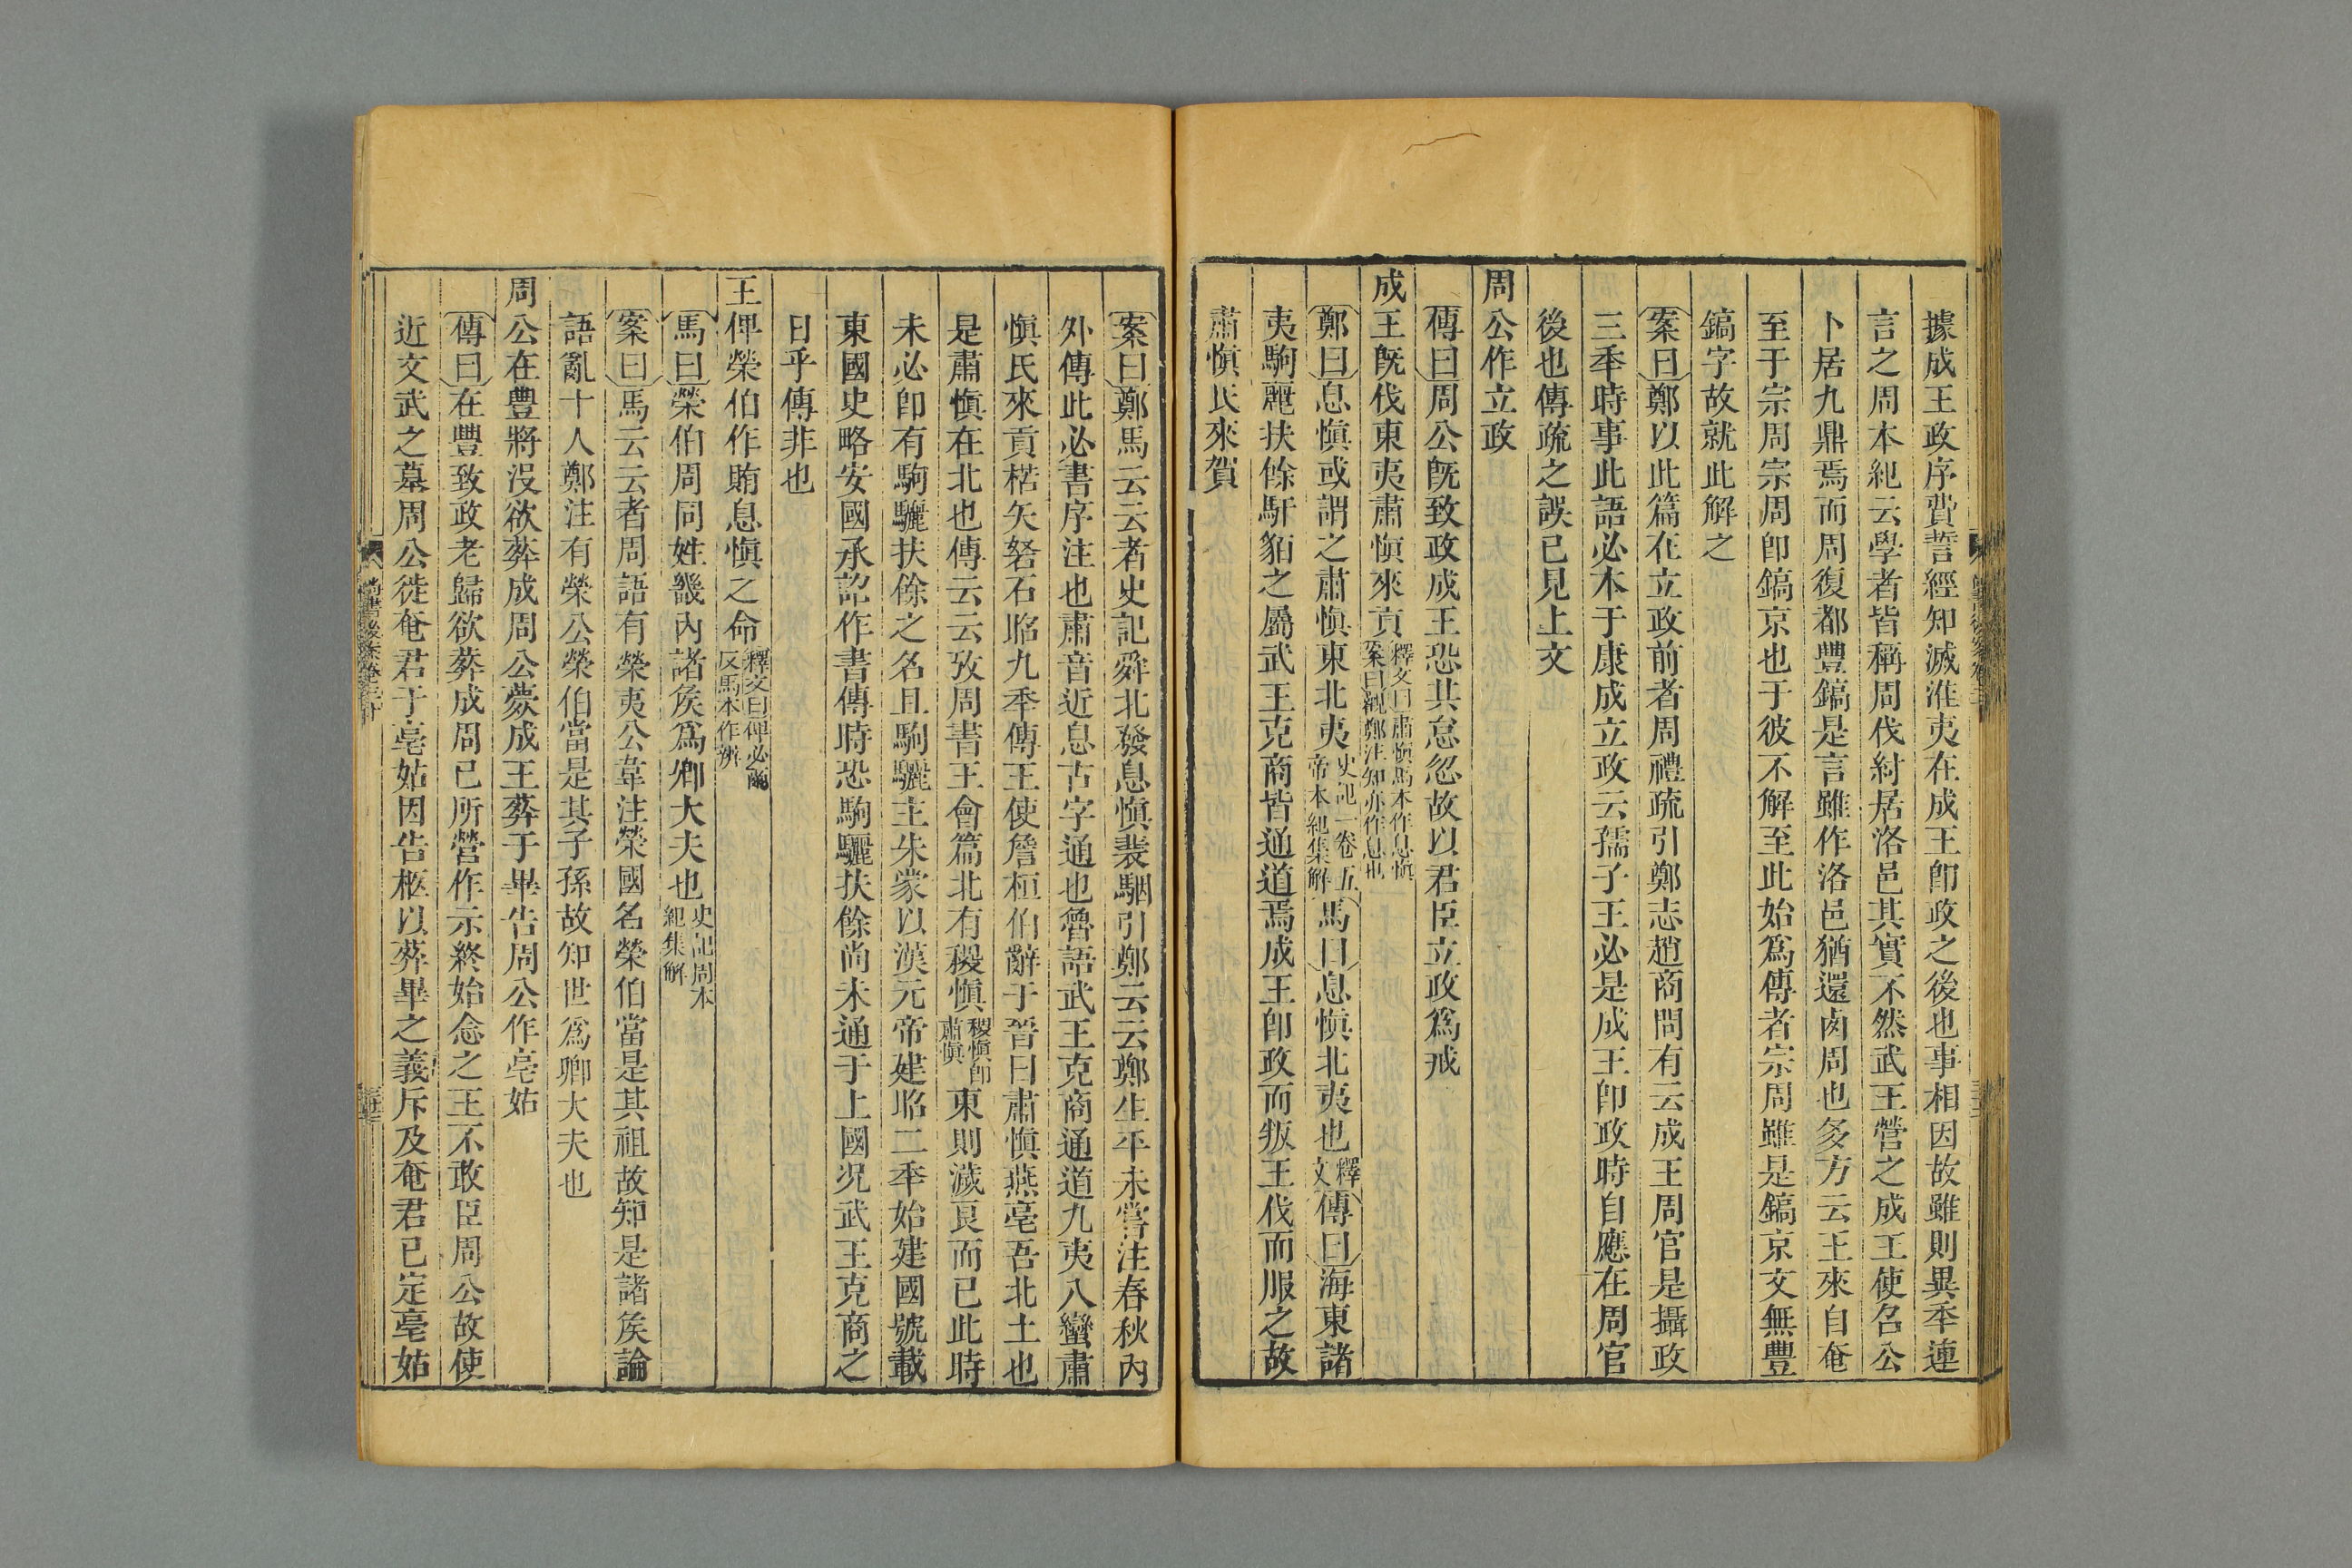 據成王政序費誓經知滅淮夷在成王卽政之後也事相因故雖則異秊連
言之周本紀云學者皆稱周伐紂居洛邑其實不然武王營之成王使召公
卜居九鼎焉而周復都豐鎬是言雖作洛邑猶還㔽周也多方云王來自奄
至于宗周宗周卽鎬京也于彼不解至此始爲傳者宗周雖是鎬京文無豐
鎬字故就此解之
案曰鄭以此篇在立政前者周禮疏引鄭志趙商問有云成王周官是攝政
三秊時事此語必本于康成立政云孺子王必是成王卽政時自應在周官
後也傳疏之誤已見上文
周公作立政
傳曰周公旣致政成王恐其怠忽故以君臣立政爲戒
成王旣伐東夷肅愼來貢釋文曰肅愼馬本作息愼案曰觀鄭注知亦作息也
鄭曰息愼或謂之肅愼東北夷史記一卷五帝本紀集解馬曰息愼北夷也釋文傳曰海東諸
夷駒麗扶餘馯貊之屬武王克商皆通道焉成王卽政而叛王伐而服之故
肅愼氏來賀
案曰鄭馬云云者史記舜北發息愼裴駰引鄭云云鄭生平未嘗注春秋內
外傳此必書序注也肅音近息古字通也魯語武王克商通道九夷八蠻肅
愼氏來貢楛矢砮石昭九秊傳王使詹桓伯辭于晉曰肅愼燕亳吾北土也
是肅愼在北也傳云云攷周書王會篇北有稷愼稷愼卽肅愼東則濊良而已此時
未必卽有駒驪扶餘之名且駒驪主朱蒙以漢元帝建昭二秊始建國號載
東國史略安國承詔作書傳時恐駒驪扶餘尚未通于上國況武王克商之
日乎傳非也
王俾榮伯作賄息愼之命釋文曰俾必爾反馬本作辨
馬曰榮伯周同姓畿內諸矦爲卿大夫也史記周本紀集解
案曰馬云云者周語有榮夷公韋注榮國名榮伯當是其祖故知是諸矦論
語亂十人鄭注有榮公榮伯當是其子孫故知世爲卿大夫也
周公在豐將沒欲葬成周公薨成王葬于畢告周公作亳姑
傳曰在豐致政老歸欲葬成周已所營作示終始念之王不敢臣周公故使
近文武之墓周公徙奄君于亳姑因告柩以葬畢之義斥及奄君已定亳姑